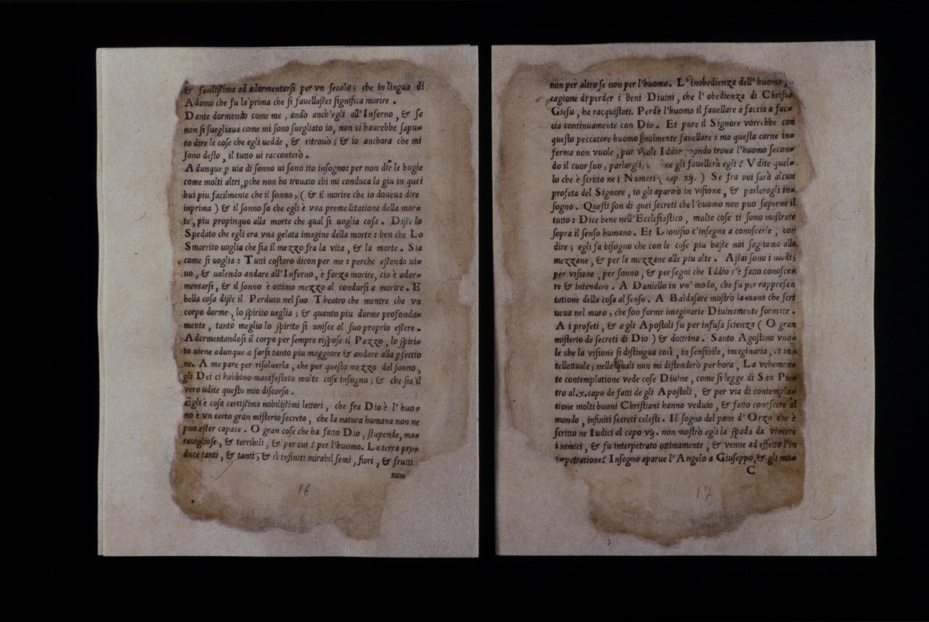 & facilissima ad adormentarsi per vn secolo; che in lingua di
Adamo che fu la prima che si fauellasse significa morire.
Dante dormendo come me, ando anch'egli all'Inferno, & se
non si suegliaua come mi sono suegliato io, non ci haurebbe sapu-
to dire le cose che egli uedde, & ritrouò; & io anchora che mi
sono desto, il tutto ui racconterò.
Adunque p uia di sonno ui sono ito insogno: per non dir le bugie
come molti altri, pche non ho trouato chi mi conduca la giu in quei
bui piu facilmente che il sonno, ( & il morire che io doueua dire
inprima ) & il sonno sa che egli è vna premeditatione della mor-
te, piu propinquo alla morte che qual si uoglia cosa. Disse lo
Spedato che egli era vna gelata imagine della morte: ben che Lo
Smarrito uoglia che sia il mezzo fra la vita, & la morte. Sia
come si uoglia: Tutti costoro dicon per me: perche essendo ui-
uo, & uolendo andare all'Inferno, è forza morire, cio è ador-
mentarsi, & il sonno è ottimo mezzo al condursi a morire. E
bella cosa disse il Perduto nel suo Theatro che mentre che vn
corpo dorme, lo spirito ueglia; & quanto piu dorme profonda-
mente, tanto meglio lo spirito si unisce al suo proprio essere.
Adormentandosi il corpo per sempre rispose il Pazzo, lo spiri-
to uiene adunque a farsi tanto piu maggiore & andare alla pfettio
ne. A me pare per risoluerla, che per questo mezzo del sonno,
gli Dei ci habbino manifestato molte cose insogno; & che sia il
vero udite questo mio discorso.
Egli è cosa certissima nobilissimi lettori, che fra Dio è l'huo-
mo è vn certo gran misterio secreto, che la natura humana non ne
puo esser capace. O gran cose che ha fatto Dio, stupende, ma-
rauigliose, & terribili, & per cui è per l'huomo. La terra pro-
duce tanti, & tanti, & sì infiniti mirabil semi, fiori, & frutti
non
16
non per altro se non per l'huomo. L'inobedienza dell'huomo,
cagione di perder i beni Diuini, che l'obedienza di Christo
Giesu, ha racquistati. Perde l'huomo il fauellare a faccia a fac-
cia continuamente con Dio. Et pure il Signore vorrebbe con
questo peccatore huomo finalmente fauellare: ma questa carne in-
ferma non vuole, pur vuole Iddio quando troua l'huomo secon-
do il cuor suo, parlargli, gli fauellerà egli? Vdite quel-
lo che è scritto ne i Numeri ( cap. xij. ) Se fra voi sarà alcun
profeta del Signore, io gli aparirò in visione, & parlerogli in
sogno. Questi son di quei secreti che l'huomo non può saperne il
tutto: Dice bene nell'Ecclesiastico, molte cose ti sono mostrate
sopra il senso humano. Et Dionisio c'insegna a conoscerle, con
dire; egli fa bisogno che con le cose piu basse noi sagliamo alle
mezzane, & per le mezzane alle piu alte. Assai sono i modi,
per visione, per sonno, & per segni che Iddio s'è fatto conosce-
re & intendere. A Daniello in vn' modo, che fu per rappresen
tatione della cosa al senso. A Baldasare mostrò la mano che scri
ueua nel muro; che son forme imaginarie Diuinamente formate.
A i profeti, & a gli Apostoli fu per infusa scienza ( O gran
misterio de secreti di Dio ) & dottrina. Santo Agostino vuo-
le che la visione si distingua così, in sensibile, imaginaria, et in-
tellettuale; nelle quali non mi distenderò per hora, La vehemen-
te contemplatione vede cose Diuine, come si legge di San Pie-
tro al.x.capo de fatti de gli Apostoli, & per via di contempla-
tione molti buoni Christiani hanno veduto, & fatto conoscere al
mondo, infiniti secreti celesti. Il sogno del pane d'Orzo che è
scritto ne Iudici al capo vij. non mostrò egli la spada da vincere
i nimici, & fu interpetrato ottimamente, & venne ad effetto l'in
terpetratione? Insogno aparue l'Angelo a Giuseppo, & gli ma-
C
17